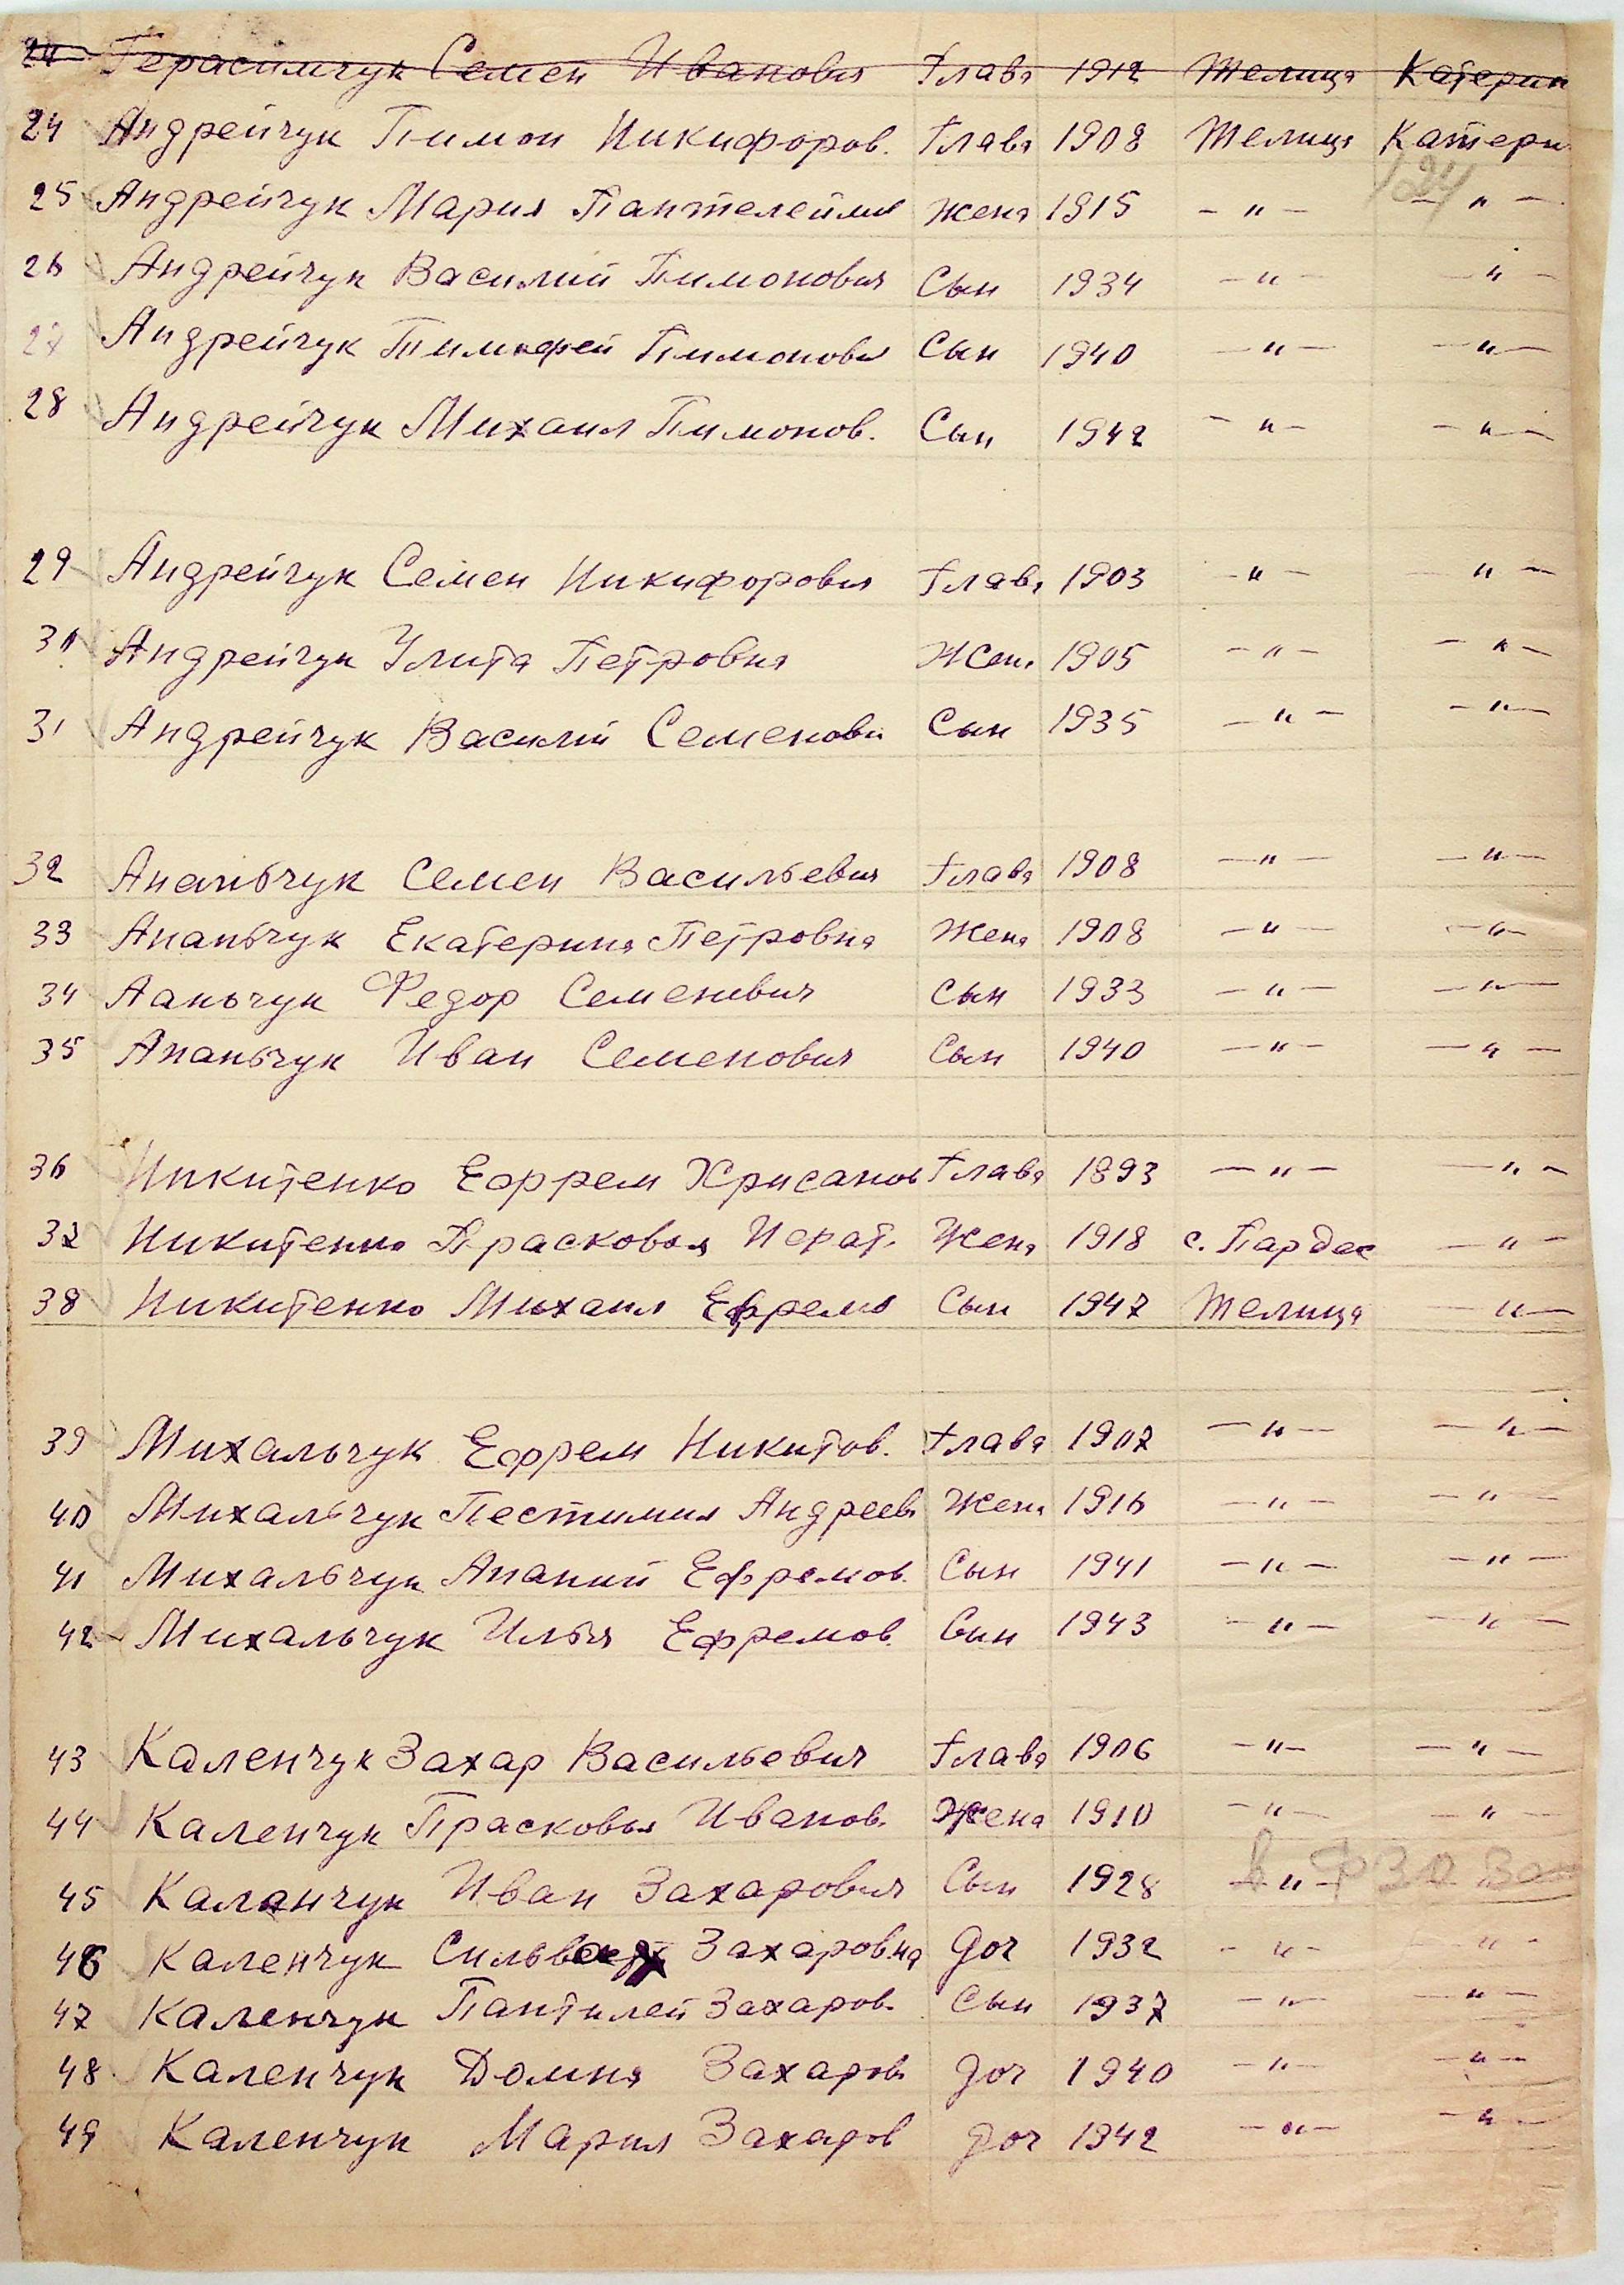 24 Герасимчук Семен Иванович Глава 1912 Телица Катерин
24 Андрейчук Пимон Никифоров. Глава 1908 Телица Катери
124
25 Андрейчук Мария Пантелейм Жена 1915 - " - - " -
26 Андрейчук Василий Пимонович Сын 1934 - " - - " -
27 Андрейчук Тимофей Пимонови Сын 1940 - " - - " -
28 Андрейчук Михаил Пимонов. Сын 1942 - " - - " -
29 Андрейчук Семен Никифорович Глава 1903 - " - - " -
30 Андрейчук Улита Петровна Жена 1905 - " - - " -
31 Андрейчук Василий Семенови Сын 1935 - " - - " -
32 Ананьчук Семен Васильевич Глава 1908 - " - - " -
33 Ананьчук Екатерина Петровна Жена 1908 - " - - " -
34 Ааньчук Федор Семенович Сын 1933 - " - - " -
35 Ананьчук Иван Семенович Сын 1940 - " - - " -
36 Никитенко Ефрем Хрисанов Глава 1893 - " - - " -
37 Никитенко Прасковья Игнат. Жена 1918 с. - " -
38 Никитенко Михаил Ефремо Сын 1947 Телица - " -
39 Михальчук Ефрем Никитов. Глава 1907 - " - - " -
40 Михальчук Пестимия Андреев Жена 1916 - " - - " -
41 Михальчук Ананий Ефремов. Сын 1941 - " - - " -
42 Михальчук Илья Ефремов. Сын 1943 - " - - " -
43 Каленчук Захар Васильевич Глава 1906 - " - - " -
44 Каленчук Прасковья Иванов. Жена 1910 - " - - " -
45 Каленчук Иван Захарович Сын 1928 - " - в ФЗО
46 Каленчук Захаровна доч 1932 - " - - " -
47 Каленчук Пантилей Захаров. Сын 1937 - " - - " -
48 Каленчук Домна Захаров доч 1940 - " - - " -
49 Каленчук Мария Захаров доч 1942 - " - - " -